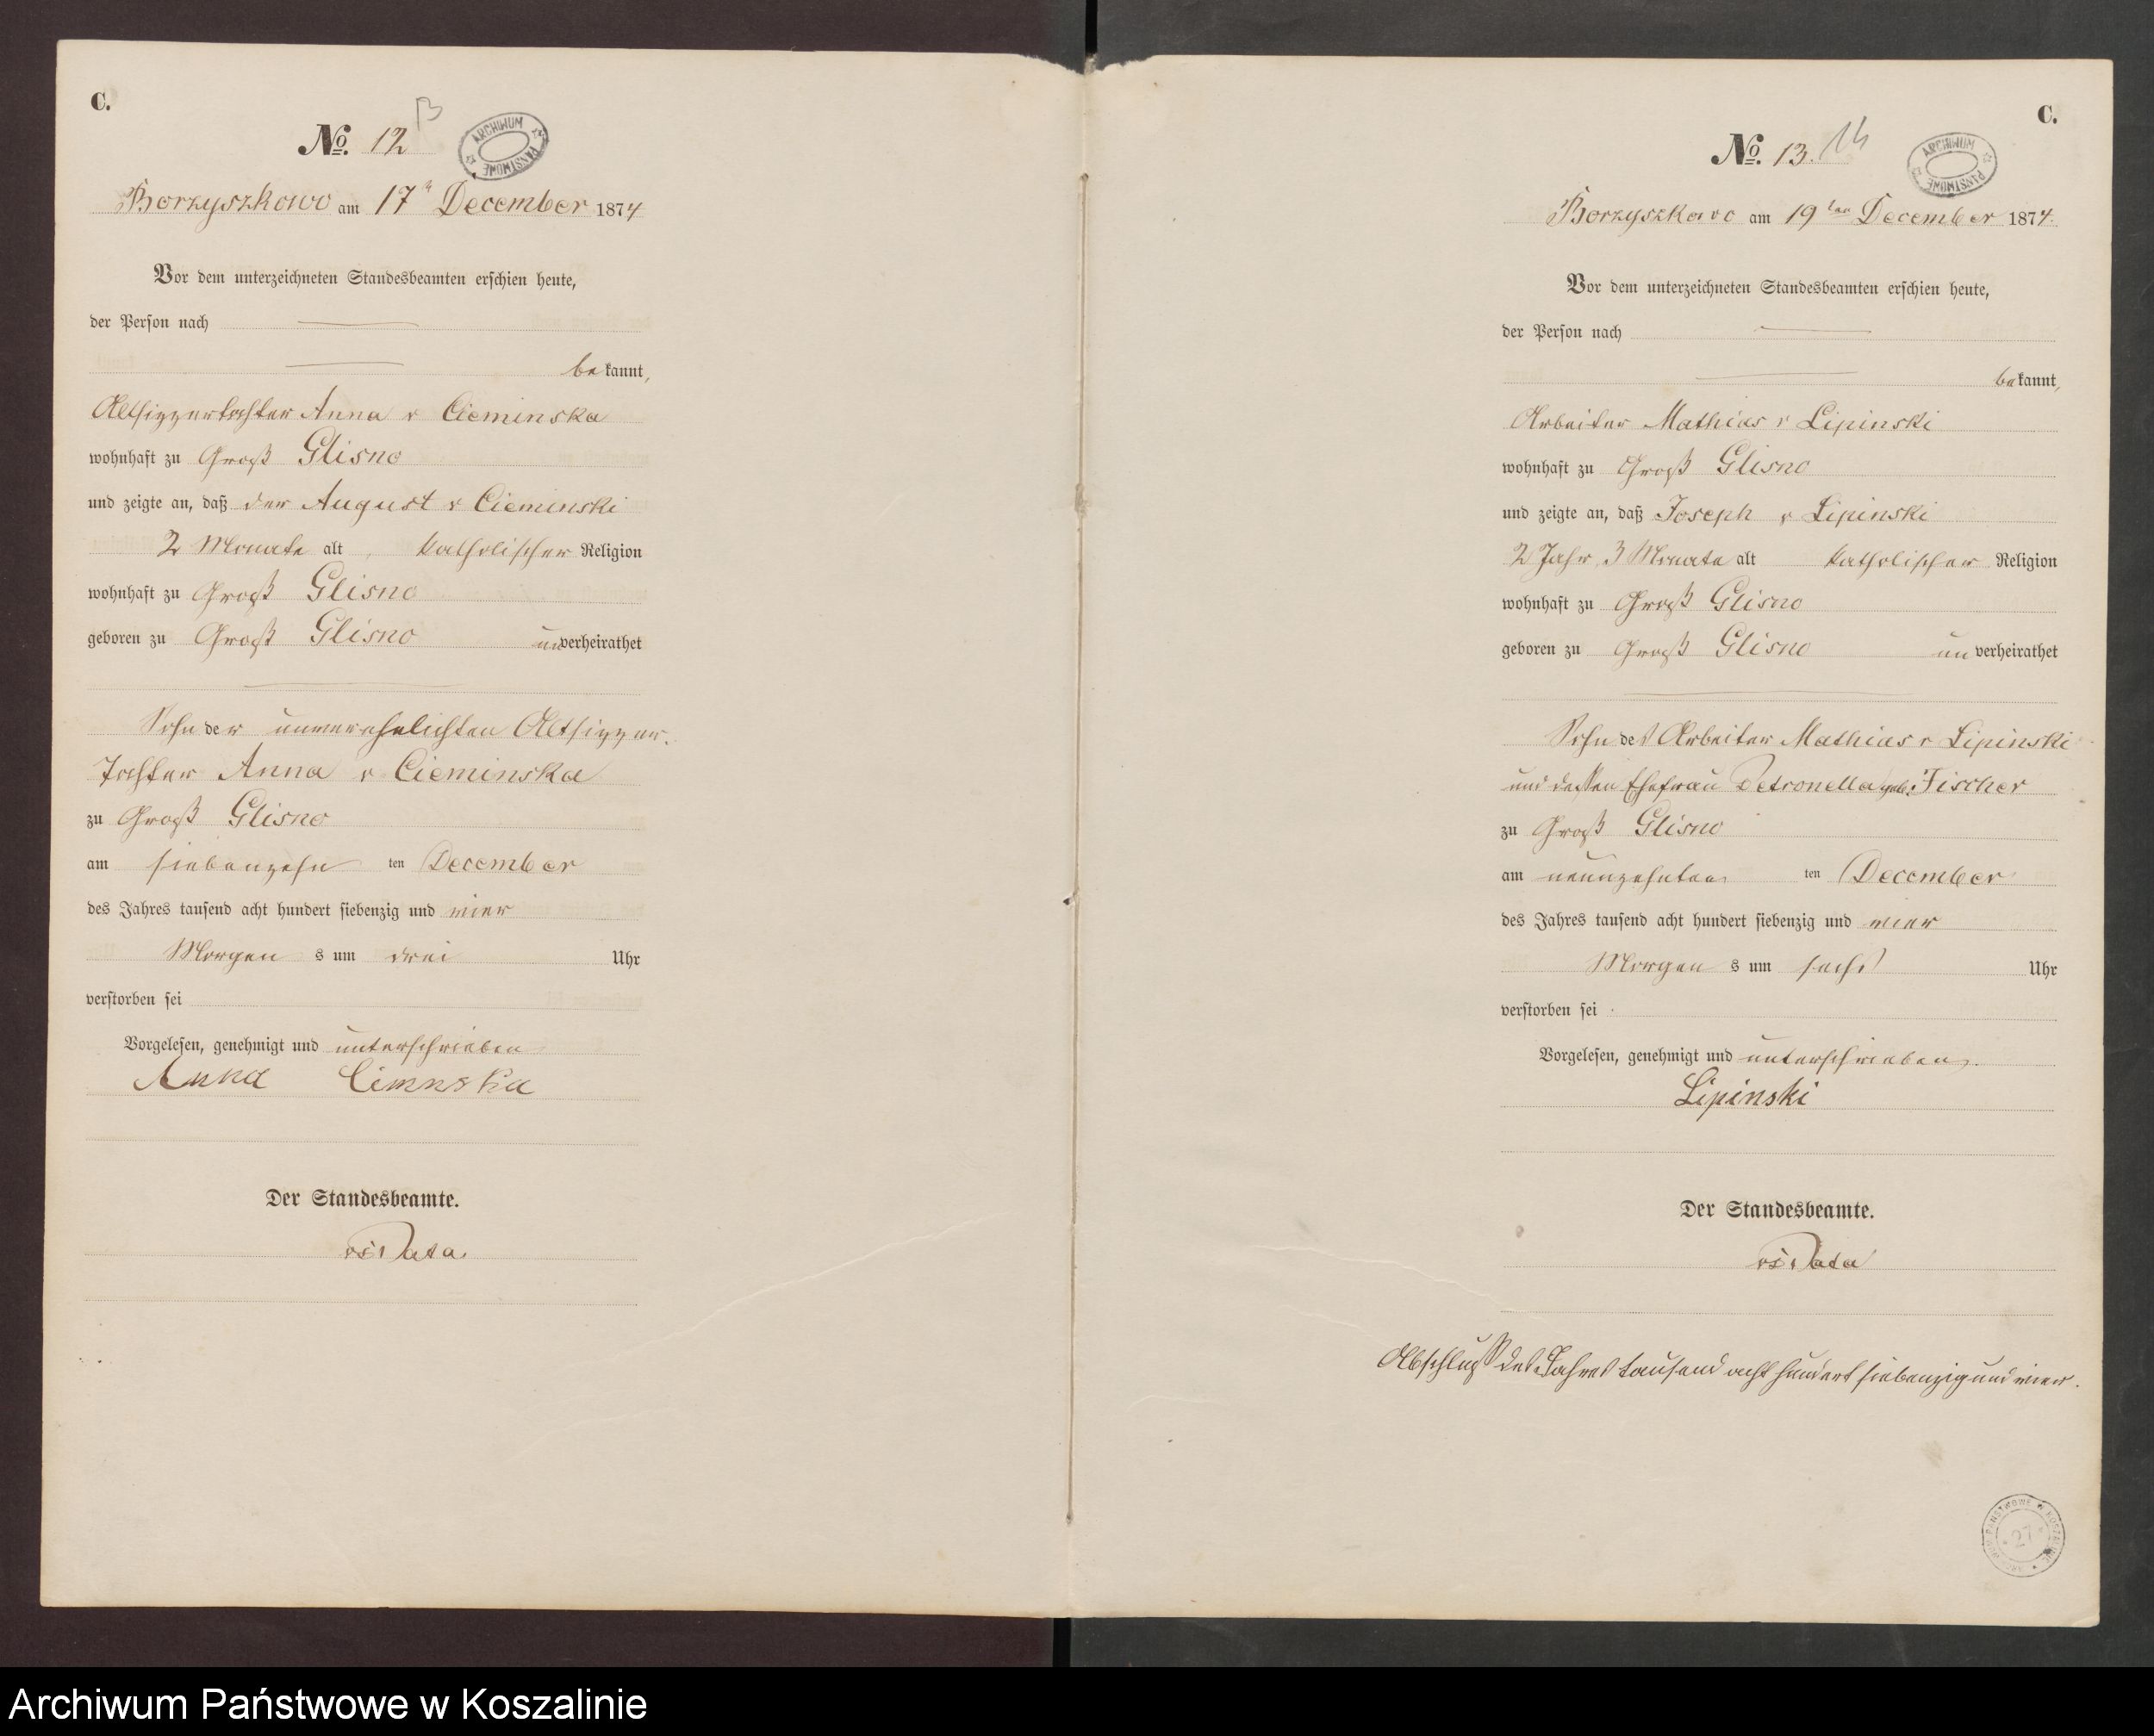 C.
No. 12 13
ARCHIWUM PAŃSTWOWE
Borzyszkowo am 17 December 1874
Vor dem unterzeichneten Standesbeamten erschien heute,
der Person nach
bekannt,
Altsitzertochter Anna v Cieminska
wohnhaft zu Groß Glisno
und zeigte an, daß der August v Cieminski
2 Monate alt, katholischer Religion
wohnhaft zu Groß Glisno
geboren zu Groß Glisno unverheirathet
Sohn der unverehelichten Altsitzer-
Tochter Anna v Cieminska
zu Groß Glisno
am siebenzehn ten December
des Jahres tausend acht hundert siebenzig und vier
Morgen s um drei Uhr
verstorben sei
Vorgelesen, genehmigt und unterschrieben
Anna Cimnska
Der Standesbeamte.
C.
No. 13. 14
ARCHIWUM PAŃSTWOWE
Borzyszkowo am 19ten December 1874.
Vor dem unterzeichneten Standesbeamten erschien heute,
der Person nach
bekannt,
Arbeiter Mathias v Lipinski
wohnhaft zu Groß Glisno
und zeigte an, daß Joseph v Lipinski
2 Jahr 3 Monate alt katholischer Religion
wohnhaft zu Groß Glisno
geboren zu Groß Glisno unverheirathet
Sohn des Arbeiter Mathias v Lipinski
und dessen Ehefrau Petronella geb. Fischer
zu Groß Glisno
am neunzehnten ten December
des Jahres tausend acht hundert siebenzig und vier
Morgen s um sechs Uhr
verstorben sei
Vorgelesen, genehmigt und unterschrieben.
Lipinski
Der Standesbeamte.
Abschluß des Jahres tausend acht hundert siebenzig und vier.
ARCHIWUM PAŃSTWOWE W KOSZALINIE
27
Archiwum Państwowe w Koszalinie